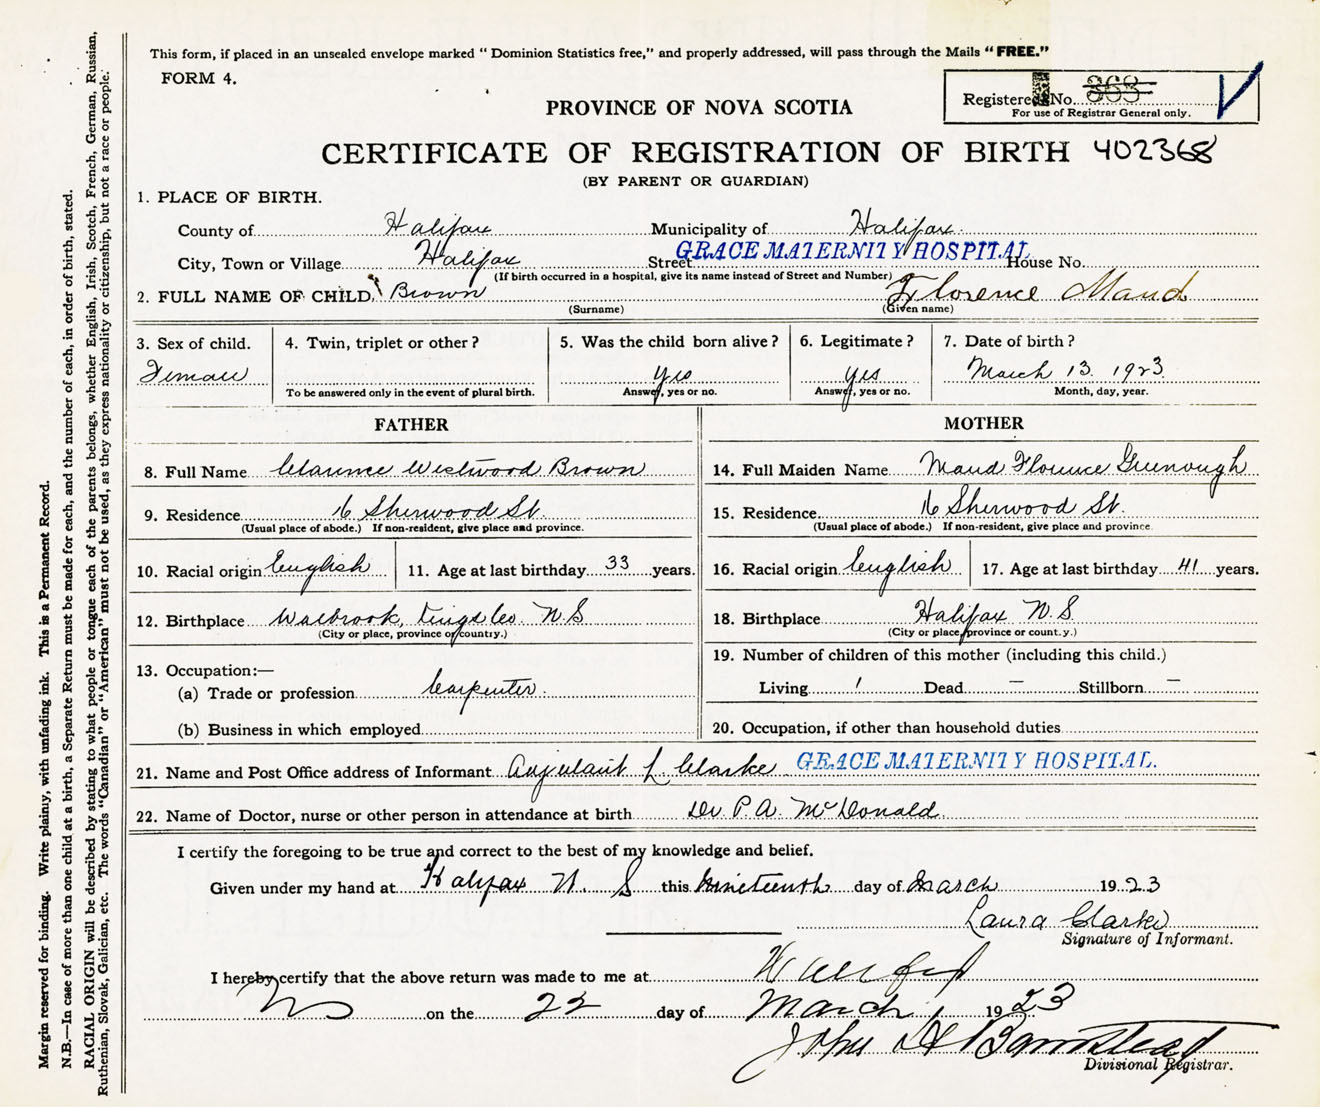 This form, if placed in an unsealed envelope marked " Dominion Statistics free," and properly addressed, will pass through the Mails "FREE."
FORM 4.
Registered No. 368
For use of Registrar General only.
PROVINCE OF NOVA SCOTIA
CERTIFICATE OF REGISTRATION OF BIRTH 402368
(BY PARENT OR GUARDIAN)
1. PLACE OF BIRTH.
County of Halifax Municipality of Halifax
City, Town or Village Halifax Street GRACE MATERNITY HOSPITAL House No.
(If birth occurred in a hospital, give its name instead of Street and Number)
2. FULL NAME OF CHILD, Brown Florence Maud
(Surname) (Given name)
3. Sex of child. 4. Twin, triplet or other? 5. Was the child born alive? 6. Legitimate? 7. Date of birth?
Female yes yes March 13 1923
To be answered only in the event of plural birth. Answer, yes or no. Answer, yes or no. Month, day, year.
FATHER MOTHER
8. Full Name Clarence Westwood Brown 14. Full Maiden Name Maud Florence Greenough
9. Residence 16 Sherwood St. 15. Residence 16 Sherwood St.
(Usual place of abode.) If non-resident, give place and province. (Usual place of abode.) If non-resident, give place and province
10. Racial origin English 11. Age at last birthday 33 years. 16. Racial origin English 17. Age at last birthday 41 years.
12. Birthplace Walbrook, Kings Co N.S 18. Birthplace Halifax N.S.
(City or place, province or country.) (City or place, province or count.y.)
19. Number of children of this mother (including this child.)
13. Occupation:—
(a) Trade or profession Carpenter. Living 1 Dead — Stillborn —
(b) Business in which employed 20. Occupation, if other than household duties
21. Name and Post Office address of Informant Adjutant L Clarke GRACE MATERNITY HOSPITAL.
22. Name of Doctor, nurse or other person in attendance at birth Dr. P. A. McDonald.
I certify the foregoing to be true and correct to the best of my knowledge and belief.
Given under my hand at Halifax N. S this Nineteenth day of March 1923
Laura Clarke
Signature of Informant.
I hereby certify that the above return was made to me at Halifax
NS on the 22 day of March 1923
John A Barnstead
Divisional Registrar.
Margin reserved for binding. Write plainly, with unfading ink. This is a Permanent Record.
N.B.—In case of more than one child at a birth, a Separate Return must be made for each, and the number of each, in order of birth, stated.
RACIAL ORIGIN will be described by stating to what people or tongue each of the parents belongs, whether English, Irish, Scotch, French, German, Russian,
Ruthenian, Slovak, Galician, etc. The words "Canadian" or "American" must not be used, as they express nationality or citizenship, but not a race or people.